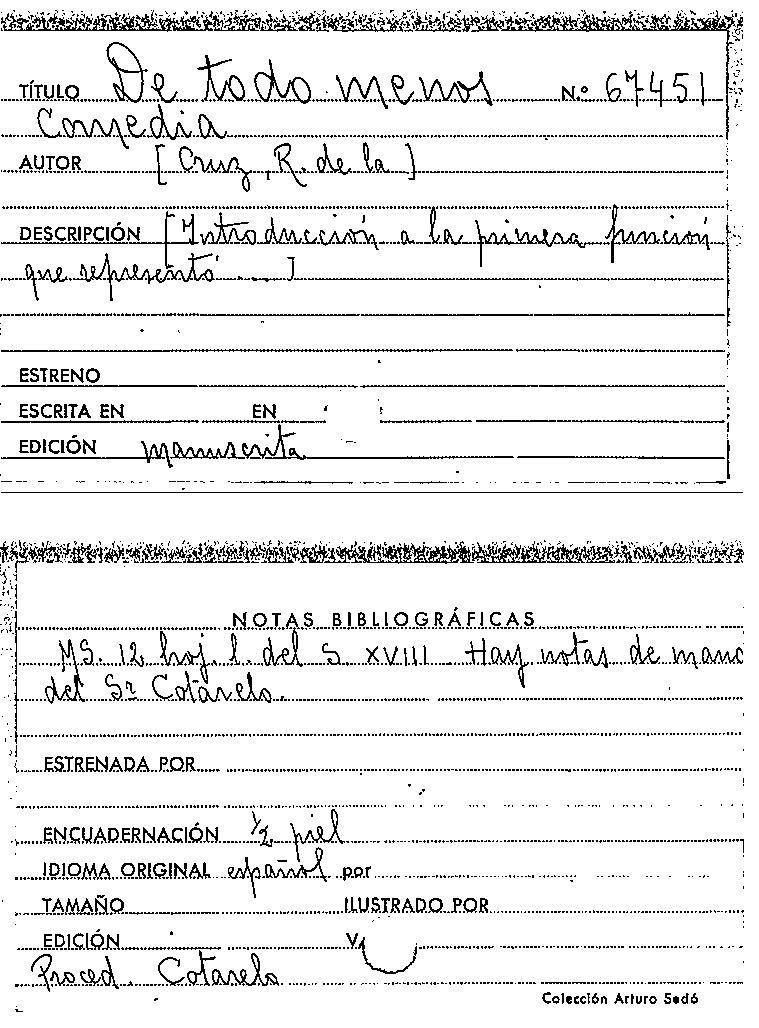 TÍTULO De todo menos N.º 67451
Comedia
AUTOR [Cruz, R. de la]
DESCRIPCIÓN [Introducción a la primera función
que representó ....]
ESTRENO
ESCRITA EN EN
EDICIÓN manuscrita
NOTAS BIBLIOGRÁFICAS
MS. 12 hoj. l. del S. XVIII. Hay notas de mano
del Sr Cotarelo.
ESTRENADA POR
ENCUADERNACIÓN ½ piel
IDIOMA ORIGINAL español por
TAMAÑO ILUSTRADO POR
EDICIÓN V.
Proced. Cotarelo
Colección Arturo Sedó